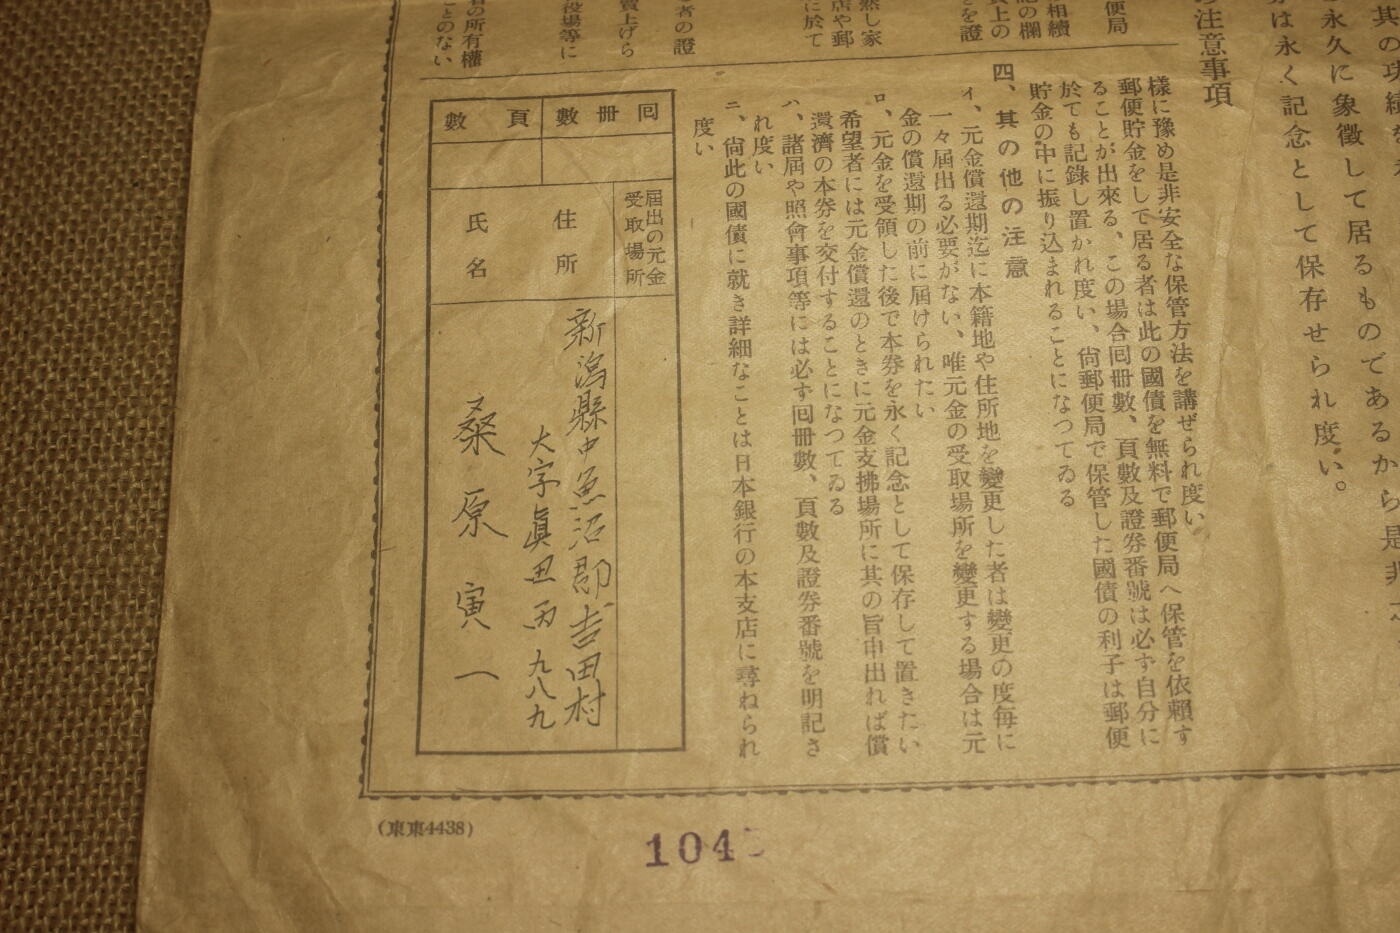 其の功績
永久に象徴して居るものであるから是非
は永く記念として保存せられ度い。
注意事項
便局
相續
の欄
上の
を證
然し家
店や郵
に於て
者の證
上げら
役場等に
の所有權
とのない
樣に豫め是非安全な保管方法を講ぜられ度い
郵便貯金をして居る者は此の國債を無料で郵便局へ保管を依賴す
ることが出來る、この場合囘册數、頁數及證券番號は必ず自分に
於ても記錄し置かれ度い、尙郵便局で保管した國債の利子は郵便
貯金の中に振り込まれることになつてゐる
四、其の他の注意
イ、元金償還期迄に本籍地や住所地を變更した者は變更の度每に
一々屆出る必要がない、唯元金の受取場所を變更する場合は元
金の償還期の前に屆けられたい
ロ、元金を受領した後で本券を永く記念として保存して置きたい
希望者には元金償還のときに元金支拂場所に其の旨申出れば償
還濟の本券を交付することになつてゐる
ハ、諸屆や照會事項等には必ず囘册數、頁數及證券番號を明記さ
れ度い
ニ、尙此の國債に就き詳細なことは日本銀行の本支店に尋ねられ
度い
囘册數
頁數
屆出の元金
受取場所
住所
新潟縣中魚沼郡吉田村
大字眞田丙九八九
氏名
桑原寅一
(東東4438)
104